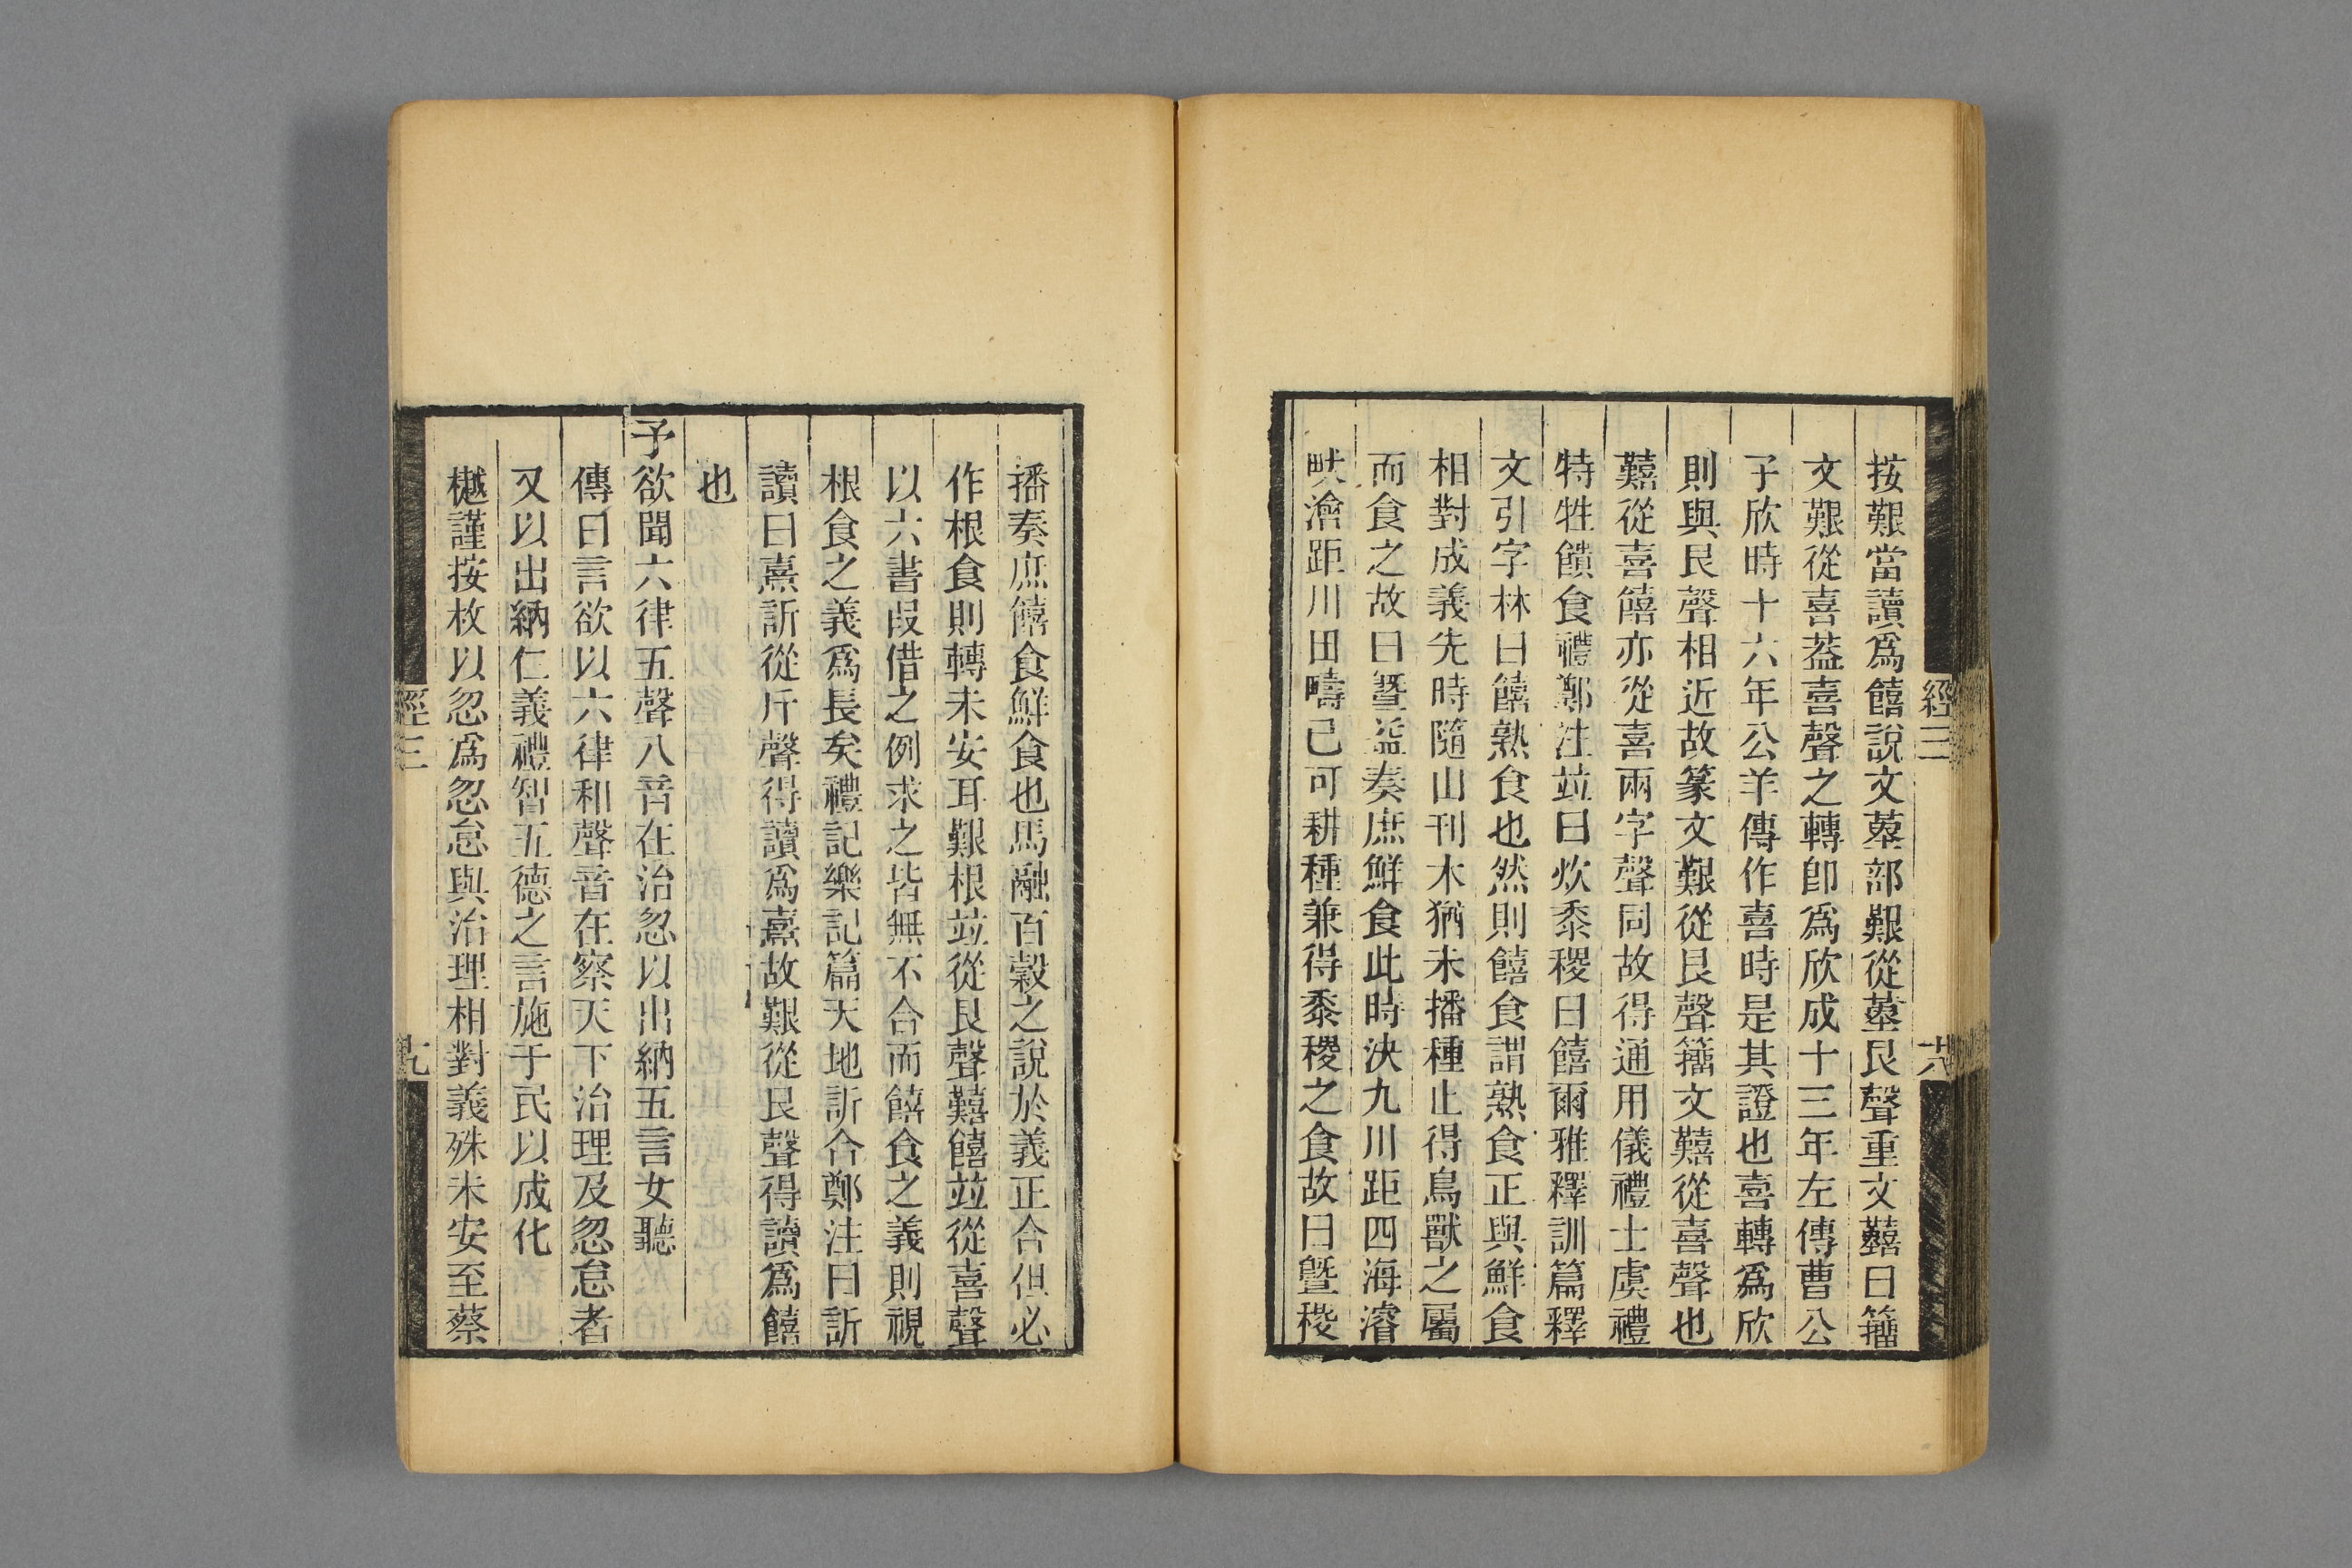 經三
十八
按艱當讀爲饎說文堇部艱從堇艮聲重文囏曰籀
文艱從喜葢喜聲之轉卽爲欣成十三年左傳曹公
子欣時十六年公羊傳作喜時是其證也喜轉爲欣
則與艮聲相近故篆文艱從艮聲籀文囏從喜聲也
囏從喜饎亦從喜兩字聲同故得通用儀禮士虞禮
特牲饋食禮鄭注竝曰炊黍稷曰饎爾雅釋訓篇釋
文引字林曰饎熟食也然則饎食謂熟食正與鮮食
相對成義先時隨山刊木猶未播種止得鳥獸之屬
而食之故曰暨益奏庶鮮食此時決九川距四海濬
畎澮距川田疇已可耕種兼得黍稷之食故曰暨稷
播奏庶饎食鮮食也馬融百穀之說於義正合但必
作根食則轉未安耳艱根竝從艮聲囏饎竝從喜聲
以六書叚借之例求之皆無不合而饎食之義則視
根食之義爲長矣禮記樂記篇天地訢合鄭注曰訢
讀曰熹訢從斤聲得讀爲熹故艱從艮聲得讀爲饎
也
予欲聞六律五聲八音在治忽以出納五言女聽
傳曰言欲以六律和聲音在察天下治理及忽怠者
又以出納仁義禮智五德之言施于民以成化
樾謹按枚以忽爲忽怠與治理相對義殊未安至蔡
經三
十九